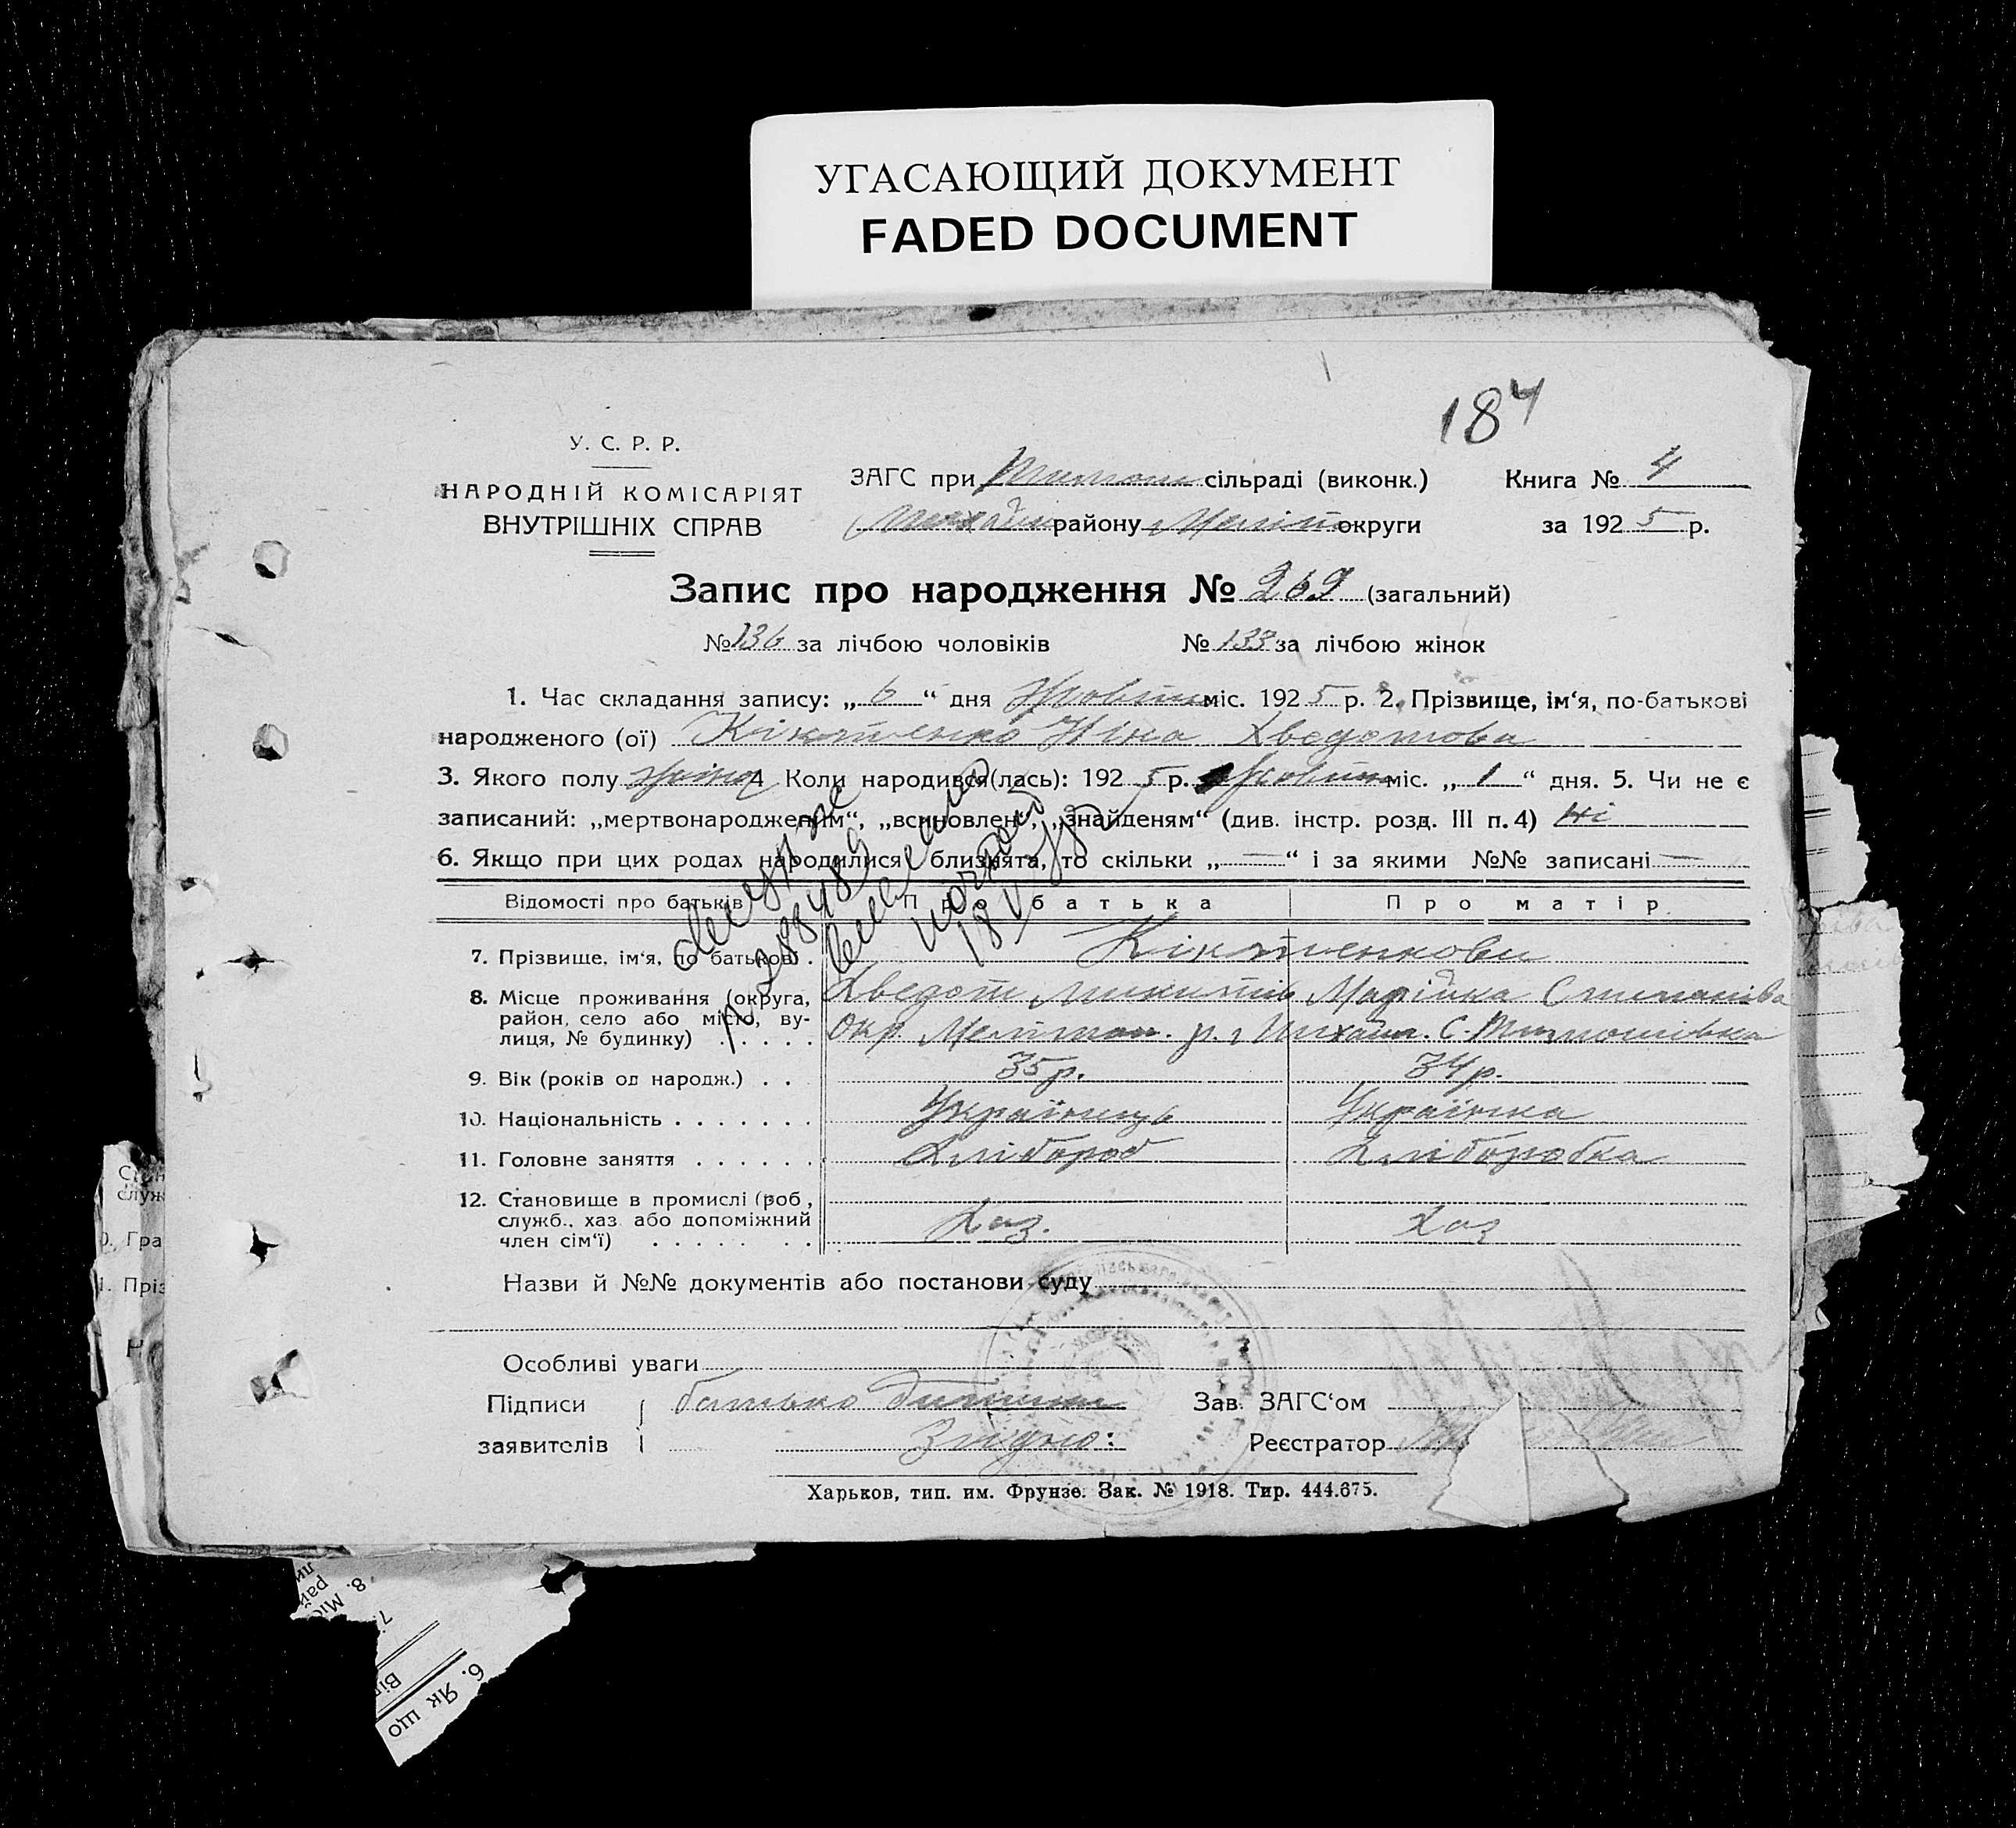 УГАСАЮЩИЙ ДОКУМЕНТ
FADED DOCUMENT
184
У. С. Р. Р.
НАРОДНІЙ КОМІСАРІЯТ
ВНУТРІШНІХ СПРАВ
ЗАГС при Тимош сільраді (виконк.)
Михайл району Меліт округи
Книга № 4
за 1925 р.
Запис про народження № 269 (загальний)
№ 136 за лічбою чоловіків № 133 за лічбою жінок
1. Час складання запису: „6“ дня Жовтня міс. 1925 р. 2. Прізвище, ім‘я, по-батькові
народженого (ої) Кікотенко Ніна Хведотова
3. Якого полу жіноч 4 Коли народився(лась): 1925 р. Жовтня міс. „1“ дня. 5. Чи не є
записаний: „мертвонародженим“, „всиновлен“, „знайденям“ (див. інстр. розд. III п. 4) Ні
6. Якщо при цих родах народилися близнята, то скільки „—“ і за якими №№ записані —
Відомості про батьків Про батька Про матір
7. Прізвище, ім‘я, по батькові . Кікотенкови
Хведот Микитів Марійка Степанівна
8. Місце проживання (округа, район, село або місто, вулиця, № будинку) . . . . . Окр. Меліт. р. Михайл. С. Тимошівка
9. Вік (років од народж.) . . 35 р. 34 р.
10. Національність . . . . . . . Українець Українка
11. Головне заняття . . . . . . Хлібороб Хліборобка
12. Становище в промислі (роб, служб., хаз. або допоміжний член сім‘ї) . . . . . . . . Хаз. Хаз
Назви й №№ документів або постанови суду
Особливі уваги
Підписи заявителів батько дитини
Згідно:
Зав. ЗАГС‘ом
Реєстратор
Харьков, тип. им. Фрунзе. Зак. № 1918. Тир. 444.675.
служ
Гра
Пріз
6. Як що
7.
8. Міс
рай